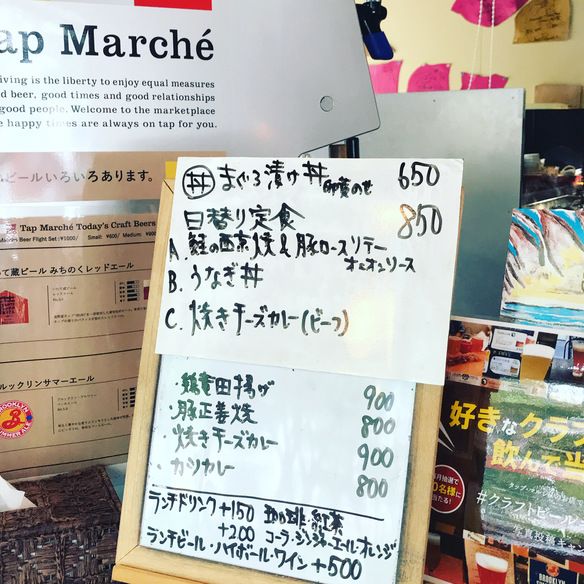 Tap Marché
iving is the liberty to enjoy equal measures
d beer, good times and good relationships
good people. Welcome to the marketplace
e happy times are always on tap for you.
ビールいろいろあります。
Tap Marché Today's Craft Beers
Beer Flight Set : ¥1600/ Small: ¥600/ Medium: ¥900
て蔵ビール みちのくレッドエール
ルックリンサマーエール
BROOKLYN
SUMMER ALE
丼 まぐろ漬け丼 卵黄のせ 650
日替り定食 850
A. 鮭の西京焼 & 豚ロースソテー
オニオンソース
B. うなぎ丼
C. 焼きチーズカレー(ビーフ)
・鶏竜田揚げ 900
・豚生姜焼 800
・焼きチーズカレー 900
・カツカレー 800
ランチドリンク +150 珈琲・紅茶
+200 コーラ・ジンジャーエール・オレンジ
ランチビール・ハイボール・ワイン +500
好きなクラ
飲んで当
毎月抽選で
0名様に
当たる!
#クラフトビール
写真投稿キャン